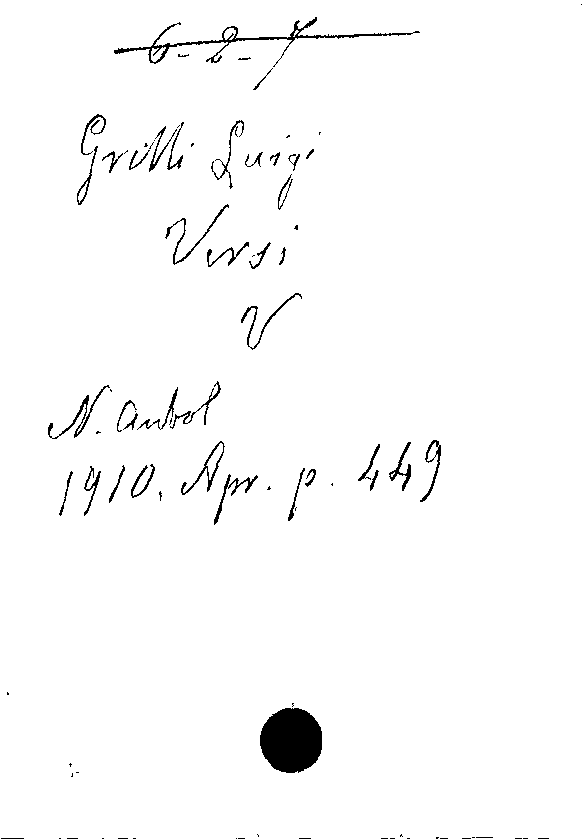 6-2-7
Grilli Luigi
Versi
V
N. Antol
1910. Apr. p. 449